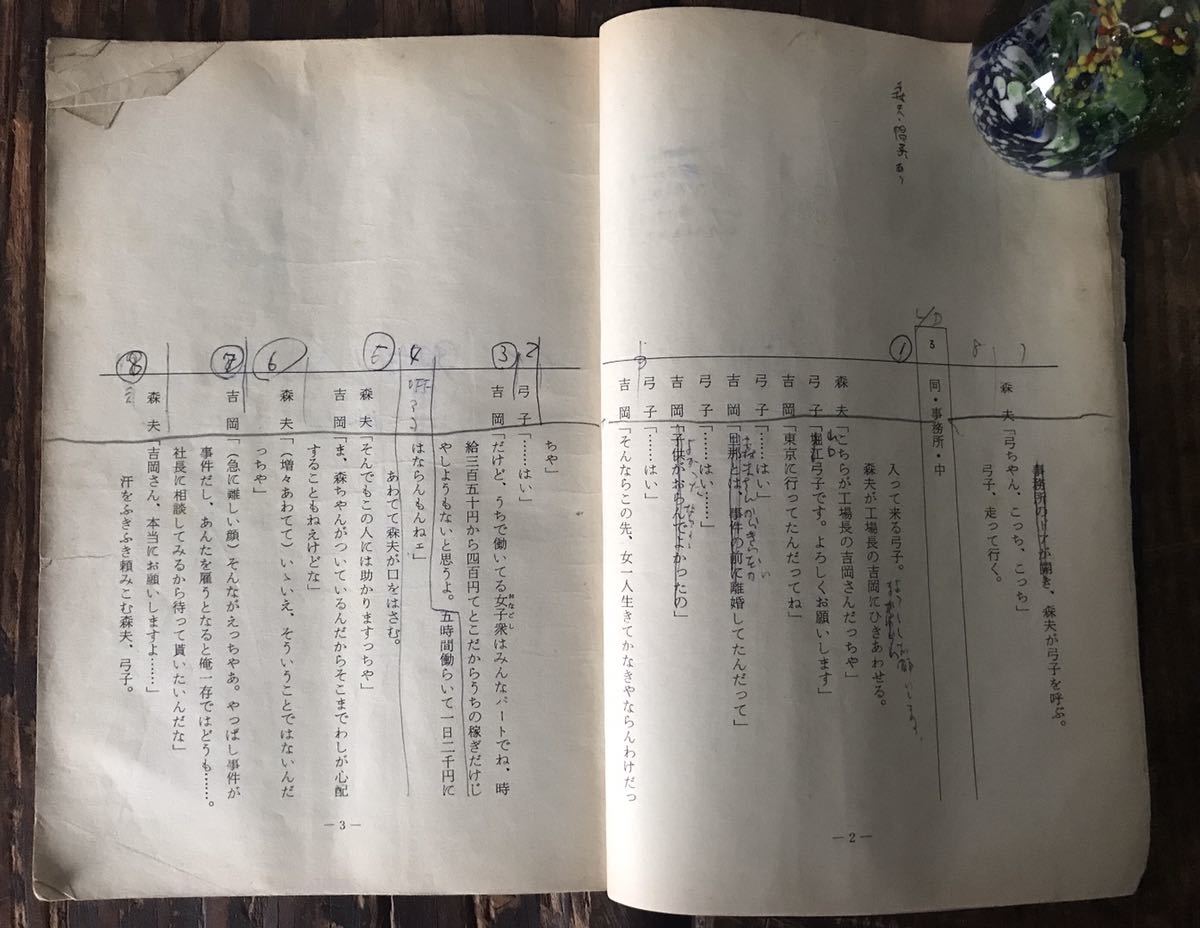 事務所のドアが開き、森夫が弓子を呼ぶ。
森　夫「弓ちゃん、こっち、こっち」
弓子、走って行く。
8 7
L/D
3 同・事務所・中
①
入って来る弓子。
森夫が工場長の吉岡にひきあわせる。
森　夫「こちらが工場長の吉岡さんだっちゃ」
弓　子「堀江弓子です。よろしくお願いします」
吉　岡「東京に行ってたんだってね」
弓　子「……はい」
吉　岡「旦那とは、事件の前に離婚してたんだって」
弓　子「……はい……」
吉　岡「子供がおらんでよかったの」
弓　子「……はい」
吉　岡「そんならこの先、女一人生きてかなきゃならんわけだっ
—2—
ちゃ」
2
弓　子「……はい」
③
吉　岡「だけど、うちで働いてる女子衆はみんなパートでね、時
おなごし
給三百五十円から四百円てとこだからうちの稼ぎだけじ
ゃしようもないと思うよ。五時間働らいて一日二千円に
はならんもんねェ」
4
あわてて森夫が口をはさむ。
⑤
森　夫「そんでもこの人には助かりますっちゃ」
吉　岡「ま、森ちゃんがついているんだからそこまでわしが心配
することもねえけどな」
⑥
森　夫「（増々あわてて）いゝえ、そういうことではないんだ
っちゃ」
⑦
吉　岡「（急に難しい顔）そんながえっちゃあ。やっぱし事件が
事件だし、あんたを雇うとなると俺一存ではどうも……。
社長に相談してみるから待って貰いたいんだな」
⑧
森　夫「吉岡さん、本当にお願いしますよ……」
汗をふきふき頼みこむ森夫、弓子。
—3—